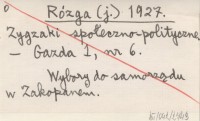 Rózga (j.) 1927.
Zygzaki społeczno-polityczne
— Gazda 1, nr 6.
Wybory do samorządu
w Zakopanem.